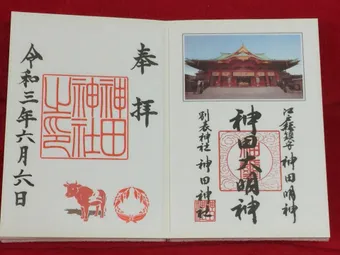 江戸總鎮守 神田明神
神田大明神
別表神社 神田神社
奉拝
神田
神社
之印
令和三年六月六日